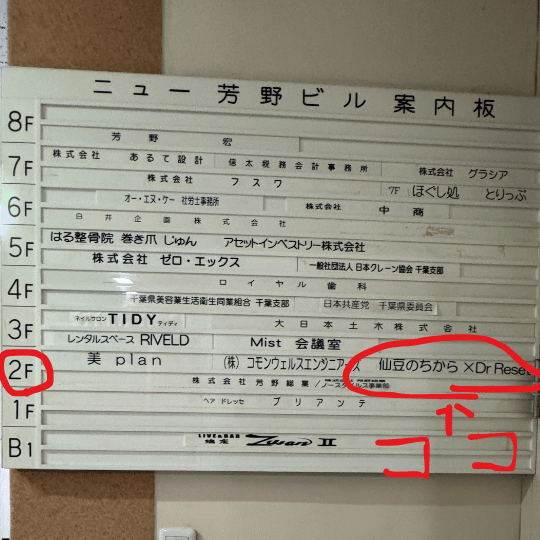 ニュー 芳野ビル 案内板
8F
芳野 宏
7F
株式会社 あるて設計 信太税務会計事務所 株式会社 グラシア
株式会社 フスワ 7F ほぐし処 とりっぷ
6F
オー・エヌ・ケー 社労士事務所 株式会社 中商
白井企画株式会社
5F
はる整骨院 巻き爪 じゅん アセットインベストリー株式会社
株式会社 ゼロ・エックス 一般社団法人 日本クレーン協会 千葉支部
4F
ロイヤル歯科
千葉県美容業生活衛生同業組合 千葉支部 日本共産党 千葉県委員会
3F
ネイルサロン TIDY ティディ 大日本土木株式会社
レンタルスペース RIVELD Mist 会議室
2F
美 plan (株) コモンウェルスエンジニアース 仙豆のちから ×Dr Reset
株式会社 芳野総業 /ノースタイルス事業部
1F
ヘアドレッセ ブリアンテ
B1
LIVE&BAR Zwan II
ココ